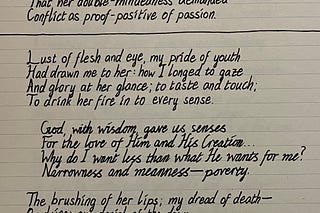 That her double-mindedness demanded
Conflict as proof-positive of passion.
Lust of flesh and eye, my pride of youth
Had drawn me to her: how I longed to gaze
And glory at her glance; to taste and touch;
To drink her fire in to every sense.
God, with wisdom, gave us senses
For the love of Him and His Creation...
Why do I want less than what He wants for me?
Narrowness and meanness—poverty.
The brushing of her lips; my dread of death—